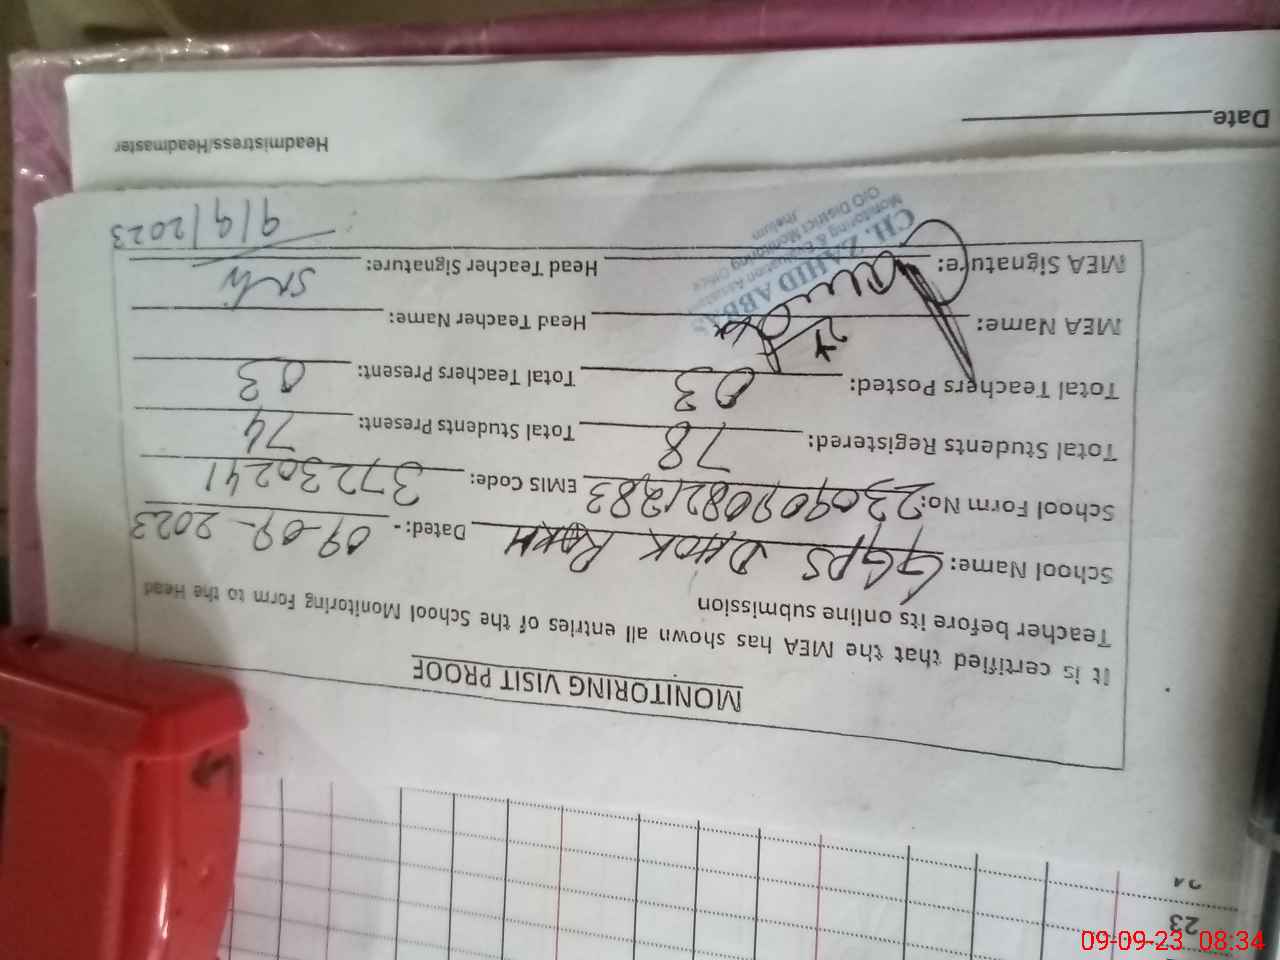 MONITORING VISIT PROOF
It is certified that the MEA has shown all entries of the School Monitoring Form to the Head
Teacher before its online submission
School Name: GGPS DHOK ROKH Dated:- 09-09-2023
School Form No: 23090908212283 EMIS Code: 37230241
Total Students Registered: 78 Total Students Present: 74
Total Teachers Posted: 03 Total Teachers Present: 03
MEA Name: Head Teacher Name:
MEA Signature: Head Teacher Signature:
CH. ZAHID ABBAS
Monitoring & Evaluation Assistant
O/O District Monitoring Office
Jhelum
9/9/2023
Headmistress/Headmaster
Date
23
09-09-23 08:34